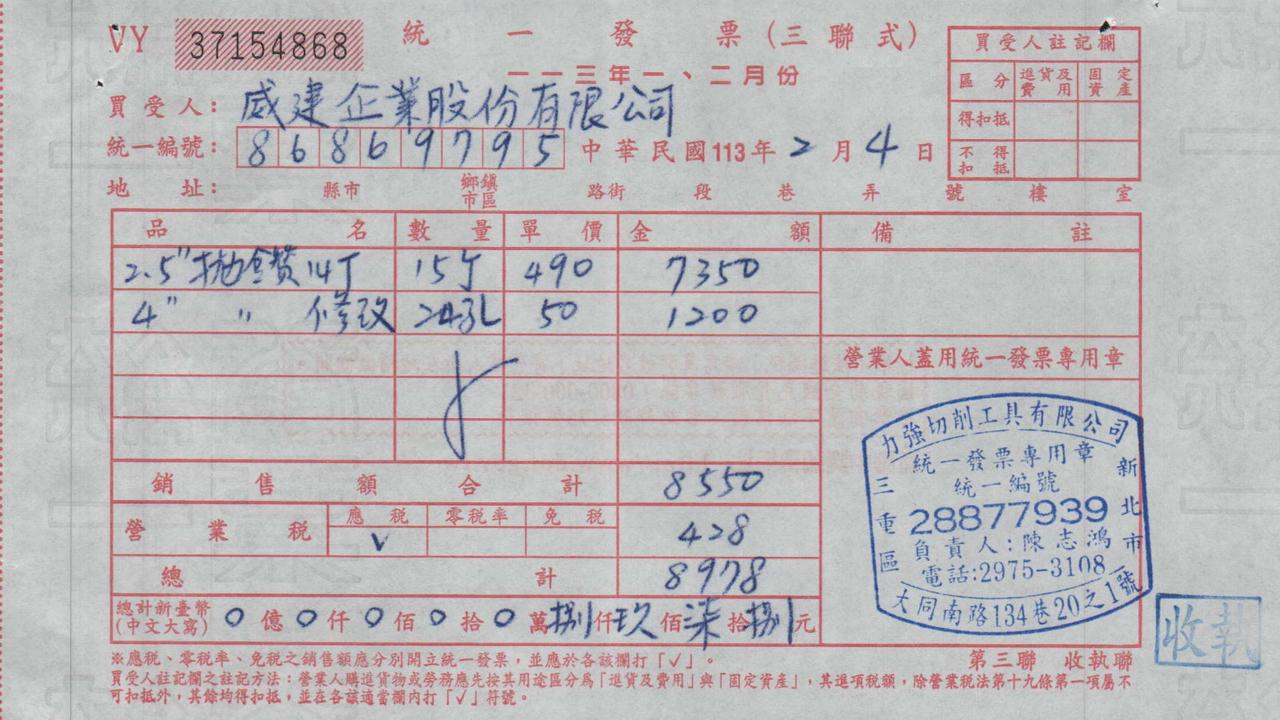 VY 37154868 統一發票(三聯式)
一一三年一、二月份
買受人註記欄
區分 進貨及費用 固定資產
得扣抵
不得扣抵
買受人: 威建企業股份有限公司
統一編號: 86869795 中華民國113年2月4日
地址: 縣市 鄉鎮市區 路街 段 巷 弄 號 樓 室
品名 數量 單價 金額 備註
2.5" 14丁 15丁 490 7350
4" " 修改 24孔 50 1200
營業人蓋用統一發票專用章
銷售額合計 8550
營業稅 應稅 零稅率 免稅 428
✓
總計 8978
總計新臺幣(中文大寫) 0億0仟0佰0拾0萬捌仟玖佰柒拾捌元
力強切削工具有限公司
統一發票專用章
統一編號
28877939
負責人:陳志鴻
電話:2975-3108
新北市三重區大同南路134巷20之1號
收執
※應稅、零稅率、免稅之銷售額應分別開立統一發票,並應於各該欄打「✓」。
第三聯 收執聯
買受人註記欄之註記方法:營業人購進貨物或勞務應先按其用途區分為「進貨及費用」與「固定資產」,其進項稅額,除營業稅法第十九條第一項屬不
可扣抵外,其餘均得扣抵,並在各該適當欄內打「✓」符號。